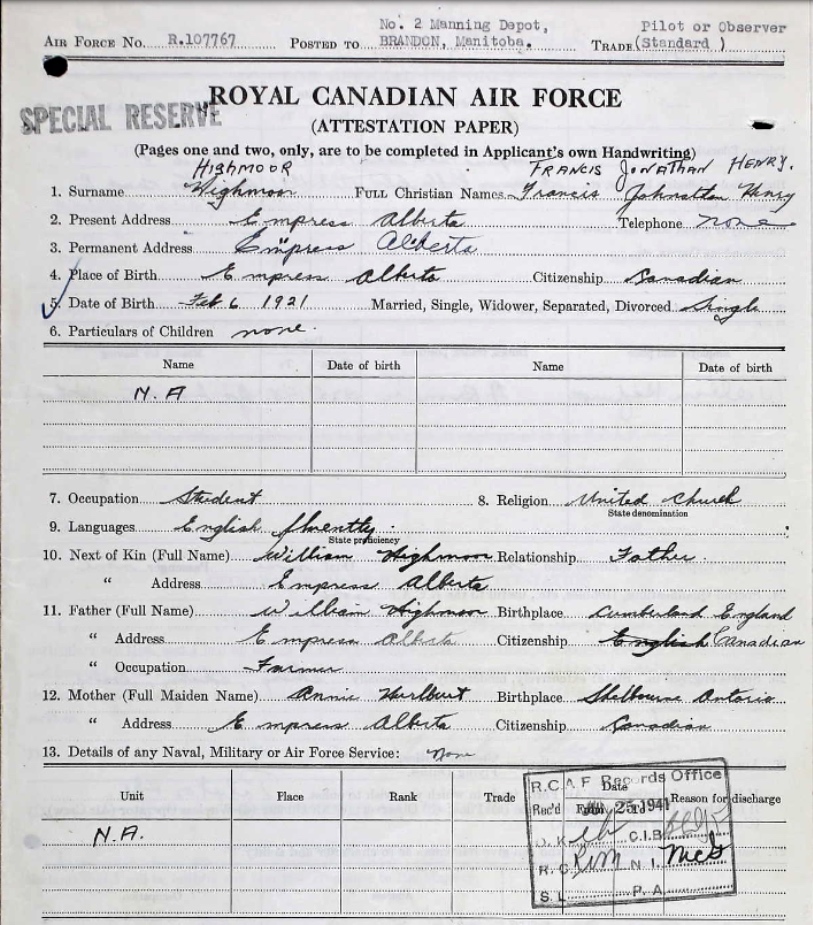 No. 2 Manning Depot, Pilot or Observer
AIR FORCE NO. R.107767 POSTED TO BRANDON, Manitoba. TRADE (Standard )
SPECIAL RESERVE
ROYAL CANADIAN AIR FORCE
(ATTESTATION PAPER)
(Pages one and two, only, are to be completed in Applicant's own Handwriting)
HIGHMOOR FRANCIS JONATHAN HENRY.
1. Surname Highmoor FULL Christian Names Francis Johnathan Henry
2. Present Address Empress Alberta Telephone none
3. Permanent Address Empress Alberta
4. Place of Birth Empress Alberta Citizenship Canadian
5. Date of Birth Feb 6 1921 Married, Single, Widower, Separated, Divorced Single
6. Particulars of Children none.
Name Date of birth Name Date of birth
N.A
7. Occupation Student 8. Religion United Church
State denomination
9. Languages English fluently.
State proficiency
10. Next of Kin (Full Name) William Highmoor Relationship Father.
" Address Empress Alberta
11. Father (Full Name) William Highmoor Birthplace Cumberland England
" Address Empress Alberta Citizenship English Canadian
" Occupation Farmer
12. Mother (Full Maiden Name) Annie Hurlburt Birthplace Shelbourne Ontario
" Address Empress Alberta Citizenship Canadian
13. Details of any Naval, Military or Air Force Service: None
R.C.A.F Records Office
Unit Place Rank Trade Date Reason for discharge
Rec'd From 25 1941 To
N.A.
O.K. C.I.B.
R.C. N.I.
S.L. P.A.